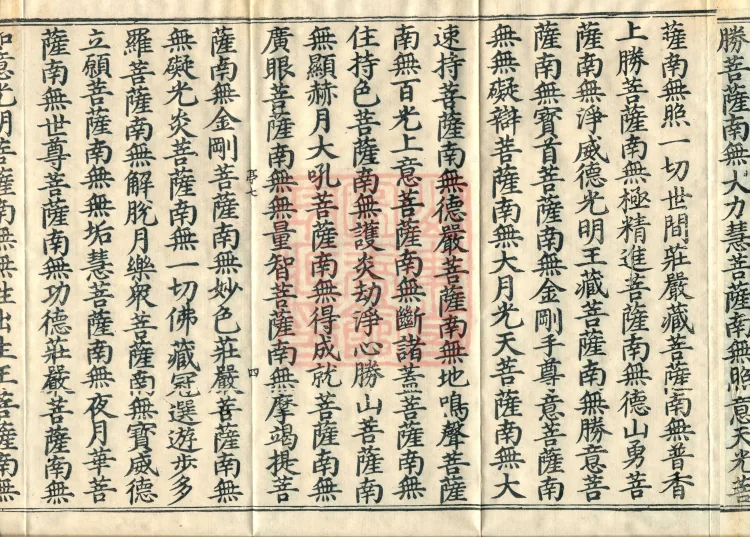 勝菩薩南無大力慧菩薩南無照意天光菩
薩南無照一切世間莊嚴藏菩薩南無普香
上勝菩薩南無極精進菩薩南無德山勇菩
薩南無淨威德光明王藏菩薩南無勝意菩
薩南無寶首菩薩南無金剛手尊意菩薩南
無無礙辯菩薩南無大月光天菩薩南無大
速持菩薩南無德嚴菩薩南無地鳴聲菩薩
南無百光上意菩薩南無斷諸蓋菩薩南無
住持色菩薩南無護炎劫淨心勝山菩薩南
無顯赫月大吼菩薩南無得成就菩薩南無
廣眼菩薩南無無量智菩薩南無摩竭提菩
第七 四
薩南無金剛菩薩南無妙色莊嚴菩薩南無
無礙光炎菩薩南無一切佛藏冠選遊步多
羅菩薩南無解脫月樂衆菩薩南無寶威德
立願菩薩南無無垢慧菩薩南無夜月華菩
薩南無世尊菩薩南無功德莊嚴菩薩南無
如意光明菩薩南無無性出生王菩薩南無